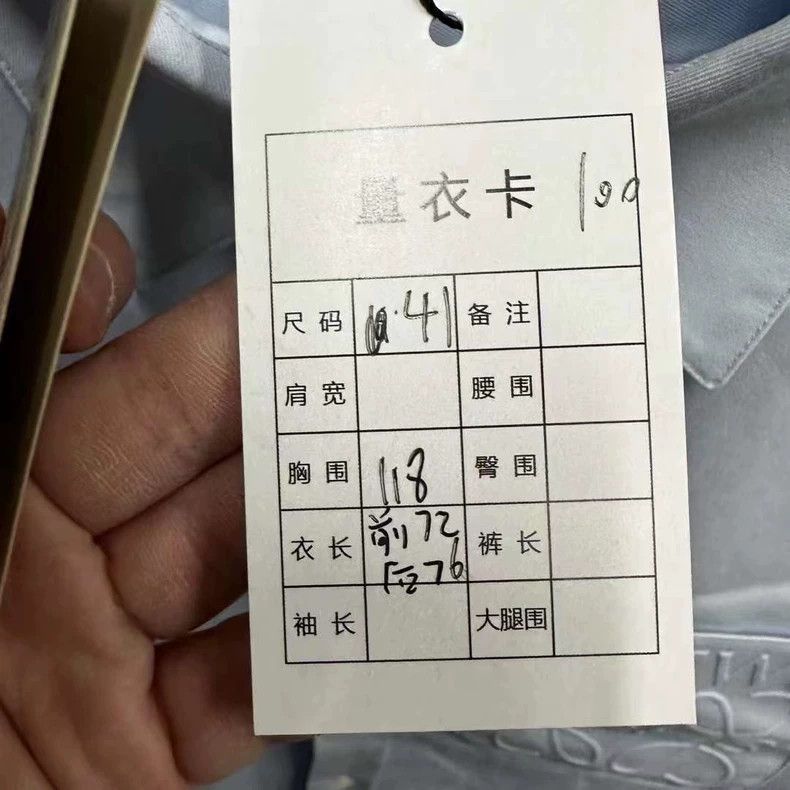 量衣卡 100
尺码 41 备注
肩宽 腰围
胸围 118 臀围
衣长 前72 裤长
后76
袖长 大腿围